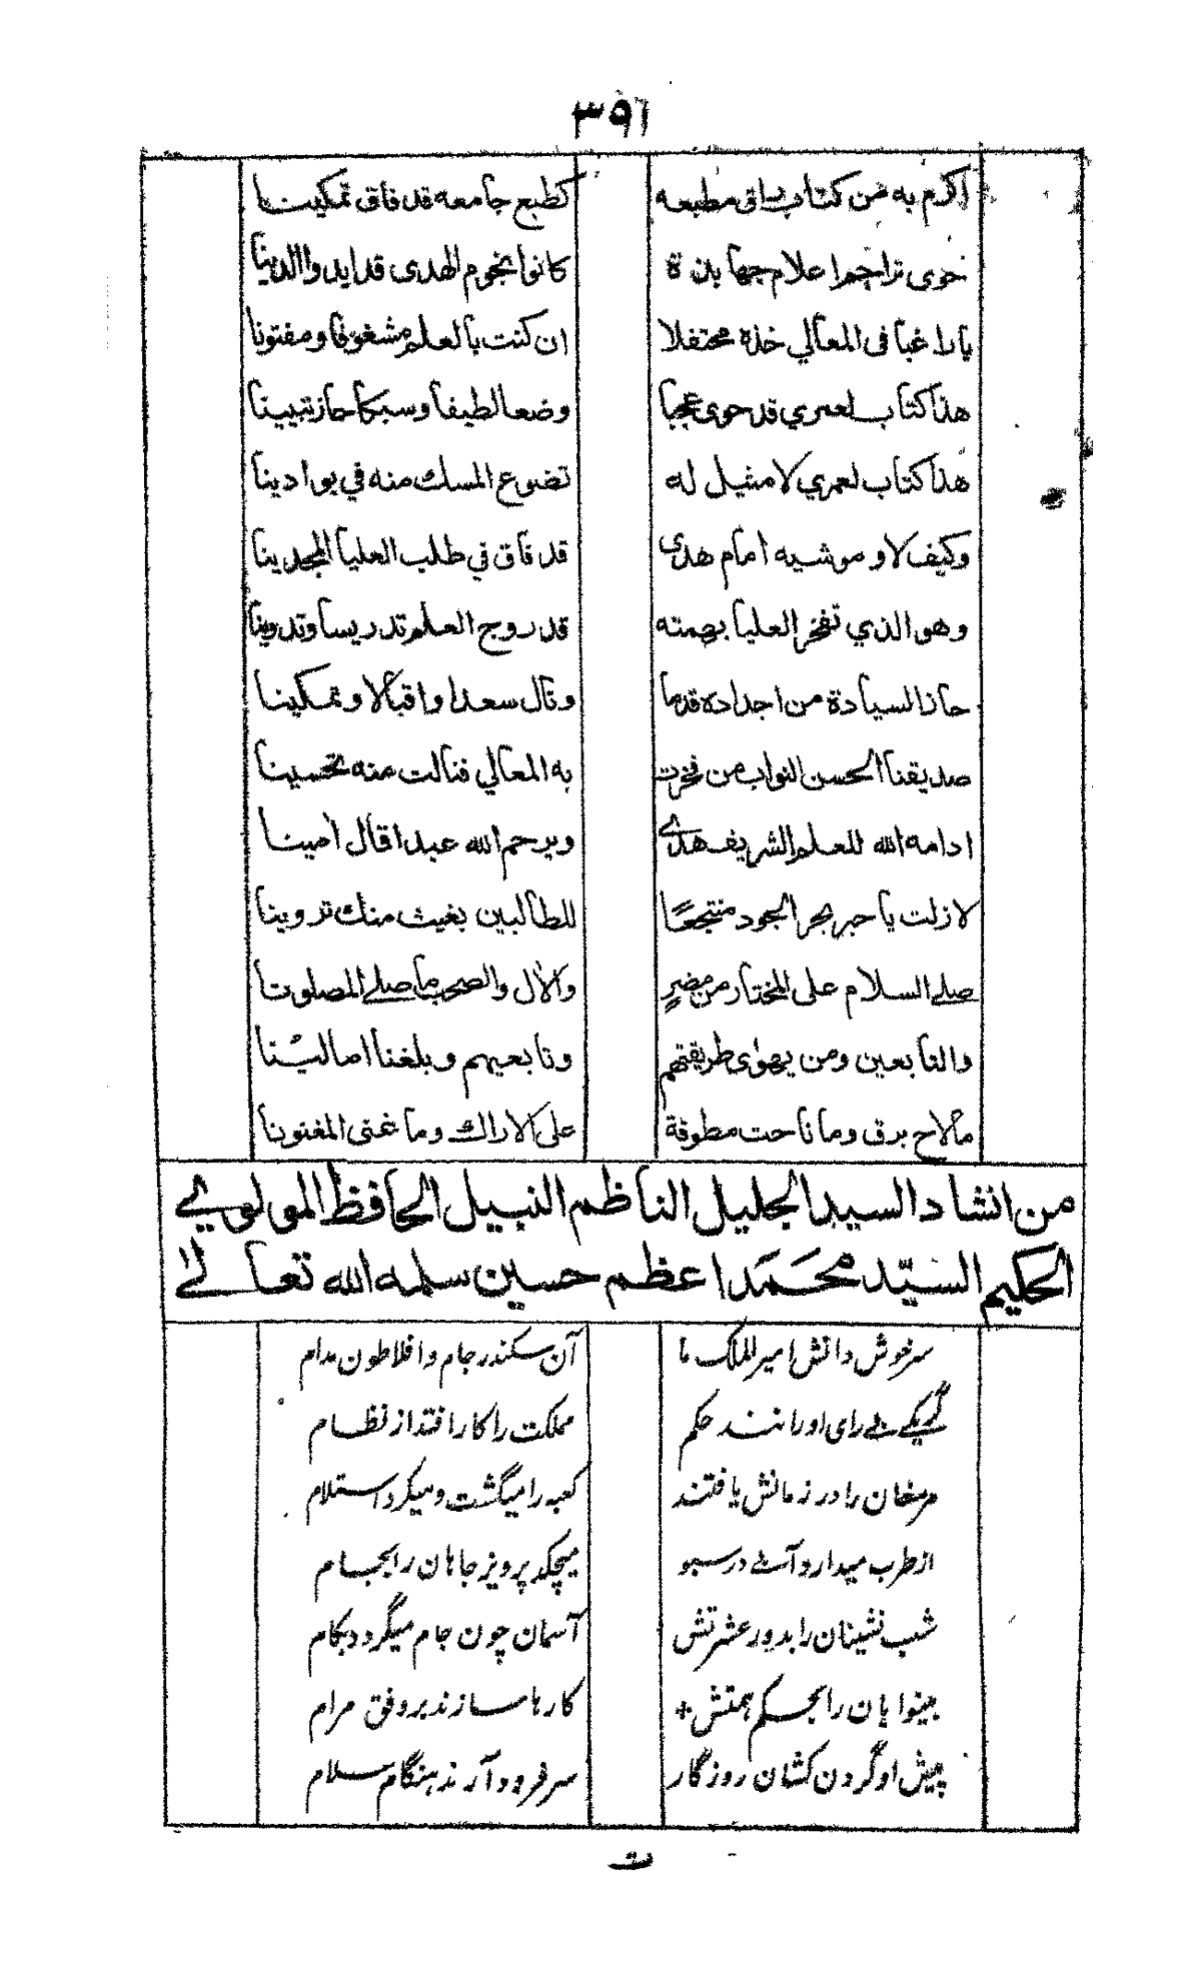 ٣٩٦
اكرم به من كتاب باق مطبعه كطبع جامعه قد فاق تمكينا
حوى تراجم اعلام جهابذة كانوا نجوم الهدى قد ايدوا الدينا
يا راغبا فى المعالي خذه محتفلا ان كنت بالعلم مشغوفا ومفتونا
هذا كتاب لعمري قد حوى عجبا وضعا لطيفا وسبكا حاز تبيينا
هذا كتاب لعمري لا مثيل له تضوع المسك منه في بوادينا
وكيف لا وموشيه امام هدى قد فاق في طلب العليا المجدينا
وهو الذي تفخر العليا بهمته قد روج العلم تدريسا وتدوينا
حاز السيادة من اجداده قدما ونال سعدا واقبالا وتمكينا
صديقنا الحسن النواب من فخرت به المعالي فنالت منه تحسينا
ادامه الله للعلم الشريف هدى ويرحم الله عبدا قال امينا
لا زلت يا حبر بحر الجود منتجعًا للطالبين بغيث منك تروينا
صلى السلام على المختار من مضرٍ والآل والصحب ما صلى المصلونا
والتابعين ومن يهوى طريقتهم وتابعيهم وبلغنا امالينا
ما لاح برق وما ناحت مطوقة على الاراك وما غنى المغنونا
من انشاد السيد الجليل الناظم النبيل الحافظ المولوي
الحكيم السيّد محمّد اعظم حسين سلمه الله تعالى
سرخوش دانش امير الملك ما آن سكندر جام و افلاطون مدام
گر یکے بے رای او راند حکم مملکت را کار افتد از نظام
هر مغان را در زمانش یافتند کعبه را میگشت و میکرد استلام
از طرب میدارد آبے در سبو میچکد پرویز جاهان را بجام
شب نشینان را بدور عشرتش آسمان چون جام میگردد بکام
بینوایان را بحکم همتش کارها سازند بر وفق مرام
پیش او گردن کشان روزگار سر فرود آرند هنگام سلام
ت